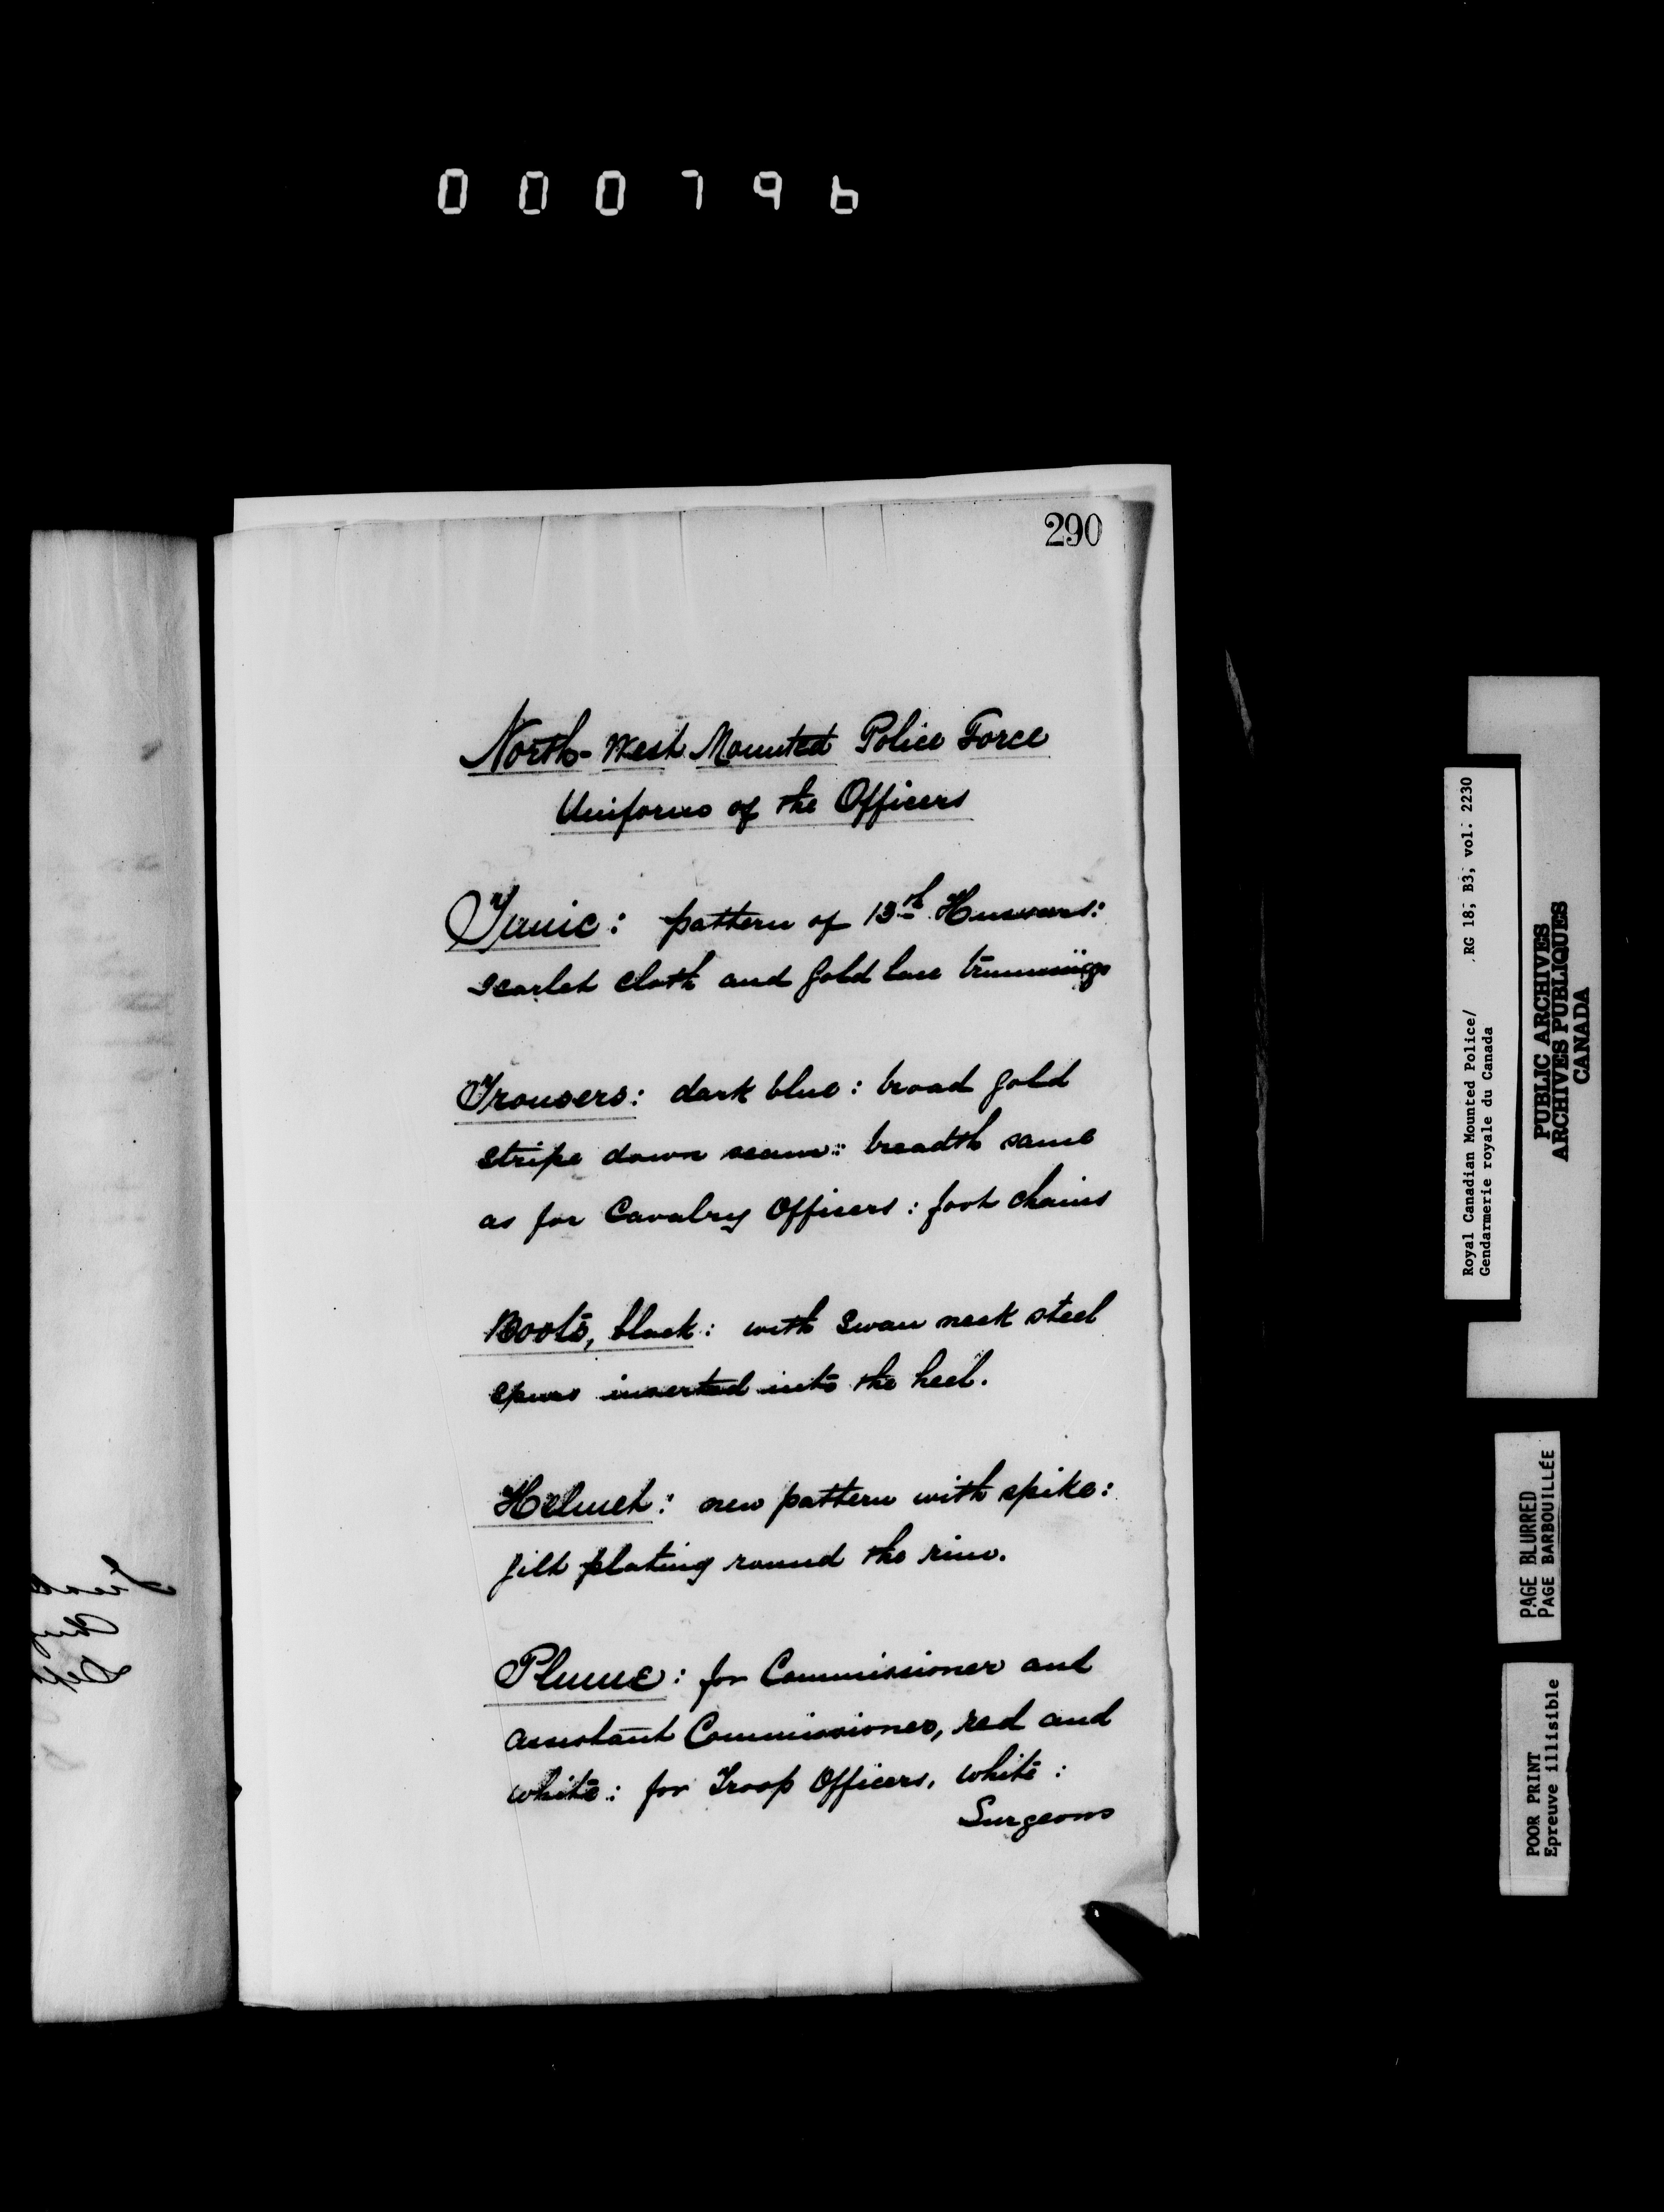 000796
290
North-West Mounted Police Force
Uniform of the Officers
Tunic: pattern of 13th Hussars:
scarlet cloth and gold lace trimmings
Trousers: dark blue: broad gold
stripe down seam: breadth same
as for Cavalry Officers: foot chains
Boots, black: with swan neck steel
spurs inserted into the heel.
Helmet: new pattern with spike:
gilt plating round the rim.
Plume: for Commissioner and
assistant Commissioner, red and
white: for Troop Officers, white:
Surgeons
Royal Canadian Mounted Police/ RG 18, B3, vol. 2230
Gendarmerie royale du Canada
PUBLIC ARCHIVES
ARCHIVES PUBLIQUES
CANADA
PAGE BLURRED
PAGE BARBOUILLÉE
POOR PRINT
Epreuve illisible